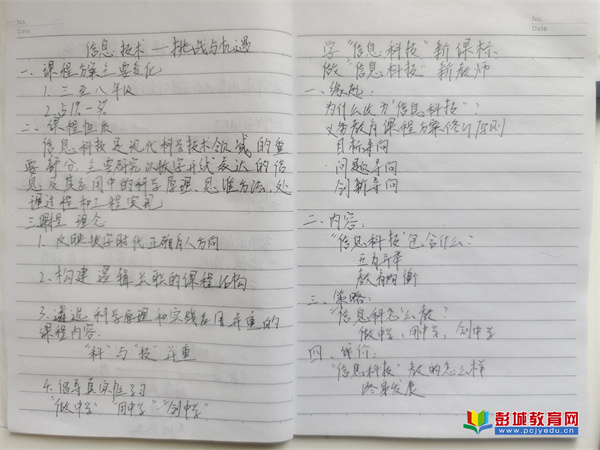 No.
Date
信息技术—挑战与机遇
一、课程方案主要变化
1. 三至八年级
2. 占1%—3%
二、课程性质
信息科技是现代科学技术领域的重
要部分,主要研究以数字形式表达的信
息及其应用中的科学原理、思维方法、处
理过程和工程实现
三、课程理念
1. 反映数字时代正确育人方向
2. 构建逻辑关联的课程结构
3. 遴选科学原理和实践应用并重的
课程内容.
"科"与"技"并重
4. 倡导真实性学习
"做中学" "用中学" "创中学"
No.
Date
学"信息科技"新课标
做"信息科技"新教师
一、缘起:
为什么改为"信息科技"?
义务教育课程方案修订原则
目标导向
问题导向
创新导向
二、内容:
"信息科技"包含什么?
三、策略:
"信息科技怎么教?
做中学、用中学、创中学
四、评价:
"信息科技"教的怎么样
终身发展
彭城教育网
www.pcjyedu.cn